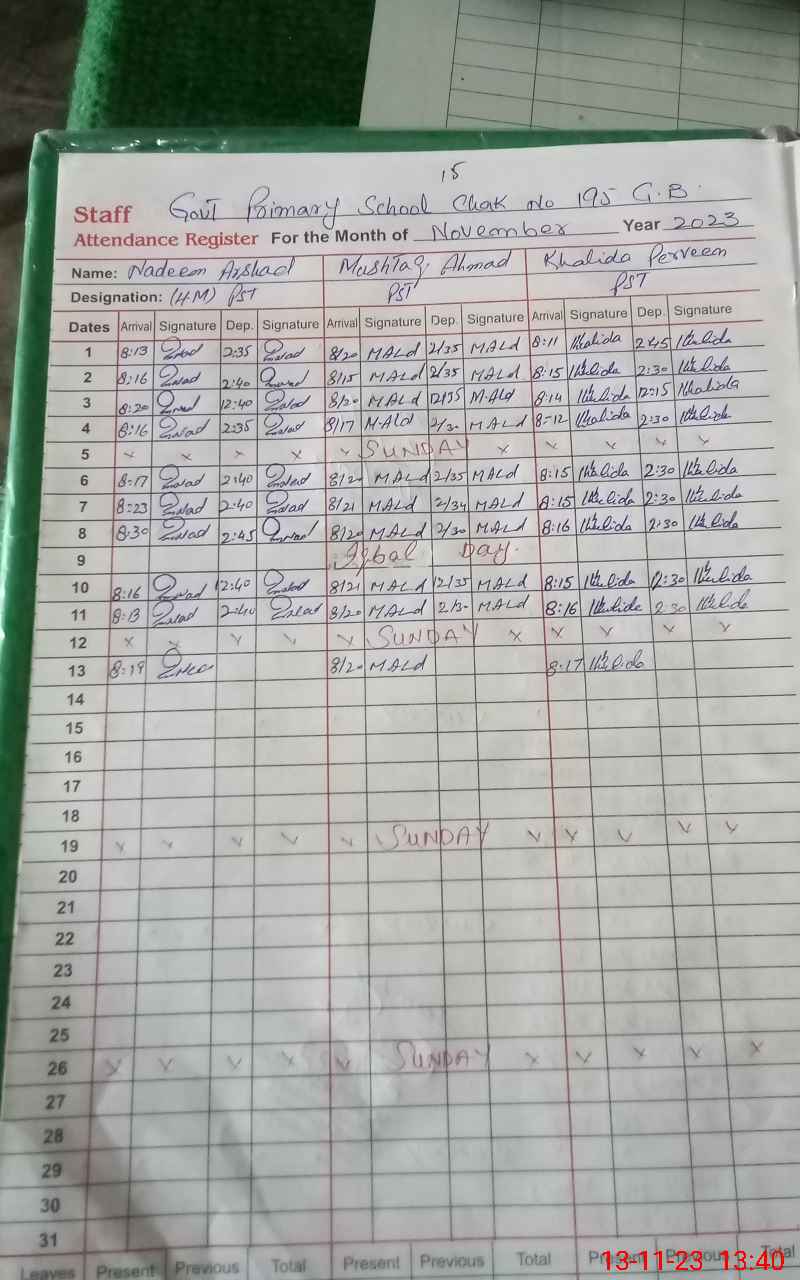 15
Staff Govt Primary School Chak No 195 G.B.
Attendance Register For the Month of November Year 2023
Name: Nadeem Arshad Mushtaq Ahmad Khalida Perveen
Designation: (HM) PST PST PST
Dates Arrival Signature Dep. Signature Arrival Signature Dep. Signature Arrival Signature Dep. Signature
1 8:13 2:35 8/20 MALd 2/35 MALd 8:11 Khalida 2:45 Khalida
2 8:16 2:40 8/15 MALd 2/35 MALd 8:15 Khalida 2:30 Khalida
3 8:20 12:40 8/20 MALd 12/35 MALd 8:14 Khalida 12:15 Khalida
4 8:16 2:35 8/17 MALd 2/30 MALd 8:12 Khalida 2:30 Khalida
5 x x x x x SUNDAY x x x x x
6 8:17 2:40 8/20 MALd 2/35 MALd 8:15 Khalida 2:30 Khalida
7 8:23 2:40 8/21 MALd 2/34 MALd 8:15 Khalida 2:30 Khalida
8 8:30 2:45 8/20 MALd 2/30 MALd 8:16 Khalida 2:30 Khalida
9 Iqbal Day.
10 8:16 12:40 8/21 MALd 12/35 MALd 8:15 Khalida 12:30 Khalida
11 8:13 2:40 8/20 MALd 2/30 MALd 8:16 Khalida 2:30 Khalida
12 x x x x x SUNDAY x x x x x
13 8:19 8/20 MALd 8:17 Khalida
14
15
16
17
18
19 x x x x x SUNDAY x x x x x
20
21
22
23
24
25
26 x x x x x SUNDAY x x x x x
27
28
29
30
31
Leaves Present Previous Total Present Previous Total Present Previous Total
13-11-23 13:40